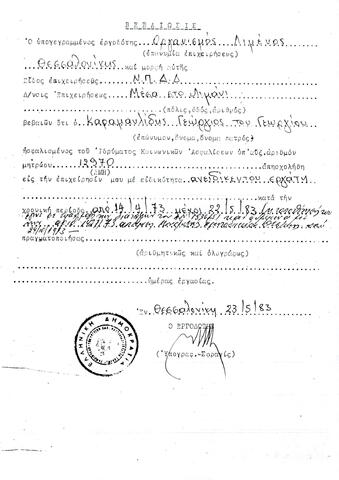 ΒΕΒΑΙΩΣΙΣ
Ὁ ὑπογεγραμμένος ἐργοδότης Οργανισμός Λιμένος
(ἐπωνυμία ἐπιχειρήσεως)
Θεσσαλονίκης καί μορφή αὐτῆς
Εἶδος ἐπιχειρήσεως Ν.Π.Δ.Δ
Δ/νσις Ἐπιχειρήσεως Μέσα στο Λιμάνι
(πόλις, ὁδός, ἀριθμός)
βεβαιῶν ὅτι ὁ Καραμανλίδης Γεώργιος του Γεωργίου
(ἐπώνυμον, ὄνομα, ὄνομα πατρός)
ἠσφαλισμένος τοῦ Ἱδρύματος Κοινωνικῶν Ἀσφαλίσεων ὑπ' αὔξ. ἀριθμόν
μητρώου 12970 ἀπησχολήθη
εἰς τήν ἐπιχείρησίν μου μέ εἰδικότητα ανειδίκευτου εργάτη
κατά τήν
χρονική περίοδο από 14/4/73 μέχρι 22/5/83
πραγματοποιήσας
(ἀριθμητικῶς καί ὁλογράφως)
ἡμέρας ἐργασίας.
Ἐν Θεσσαλονίκη 23/5/83
Ο ΕΡΓΟΔΟΤΗΣ
(Ὑπογρ.-Σφραγίς)
ΕΛΛΗΝΙΚΗ ΔΗΜΟΚΡΑΤΙΑ